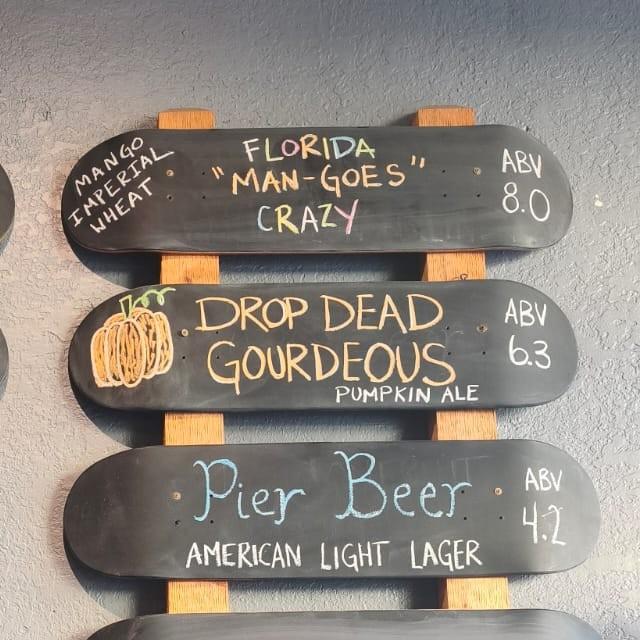 MANGO
IMPERIAL
WHEAT
FLORIDA
"MAN-GOES"
CRAZY
ABV
8.0
DROP DEAD
GOURDEOUS
PUMPKIN ALE
ABV
6.3
Pier Beer
AMERICAN LIGHT LAGER
ABV
4.2